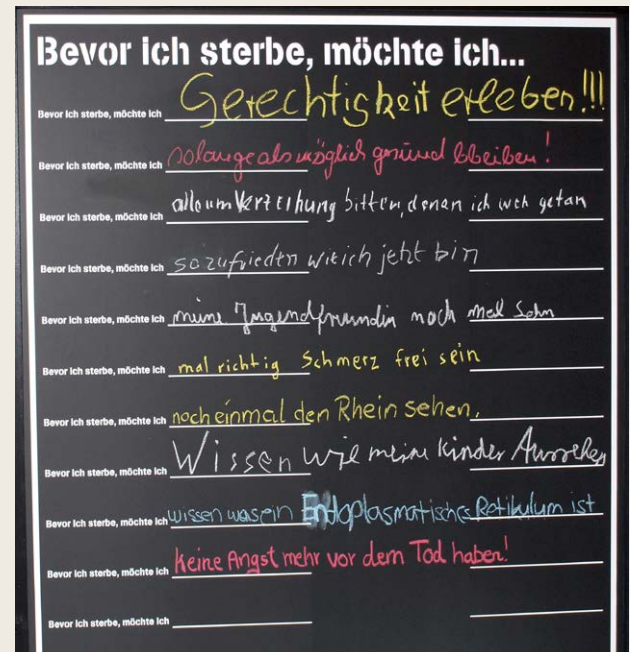 Bevor ich sterbe, möchte ich...
Bevor ich sterbe, möchte ich Gerechtigkeit erleben!!!
Bevor ich sterbe, möchte ich solange als möglich gesund bleiben!
Bevor ich sterbe, möchte ich alle um Verzeihung bitten, denen ich weh getan
Bevor ich sterbe, möchte ich so zufrieden wie ich jetzt bin
Bevor ich sterbe, möchte ich meine Jugendfreundin noch mal Sehn
Bevor ich sterbe, möchte ich mal richtig Schmerz frei sein
Bevor ich sterbe, möchte ich noch einmal den Rhein sehen.
Bevor ich sterbe, möchte ich Wissen wie meine Kinder Aussehen
Bevor ich sterbe, möchte ich wissen was ein Endoplasmatisches Retikulum ist
Bevor ich sterbe, möchte ich Keine Angst mehr vor dem Tod haben!
Bevor ich sterbe, möchte ich